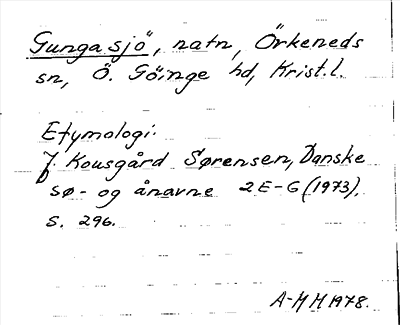 Gunga sjö, natn, Örkeneds
sn, Ö. Göinge hd, Krist. l.
Etymologi:
J. Kousgård Sørensen, Danske
sø- og ånavne 2 E-G (1973),
s. 296.
A-M H 1978.